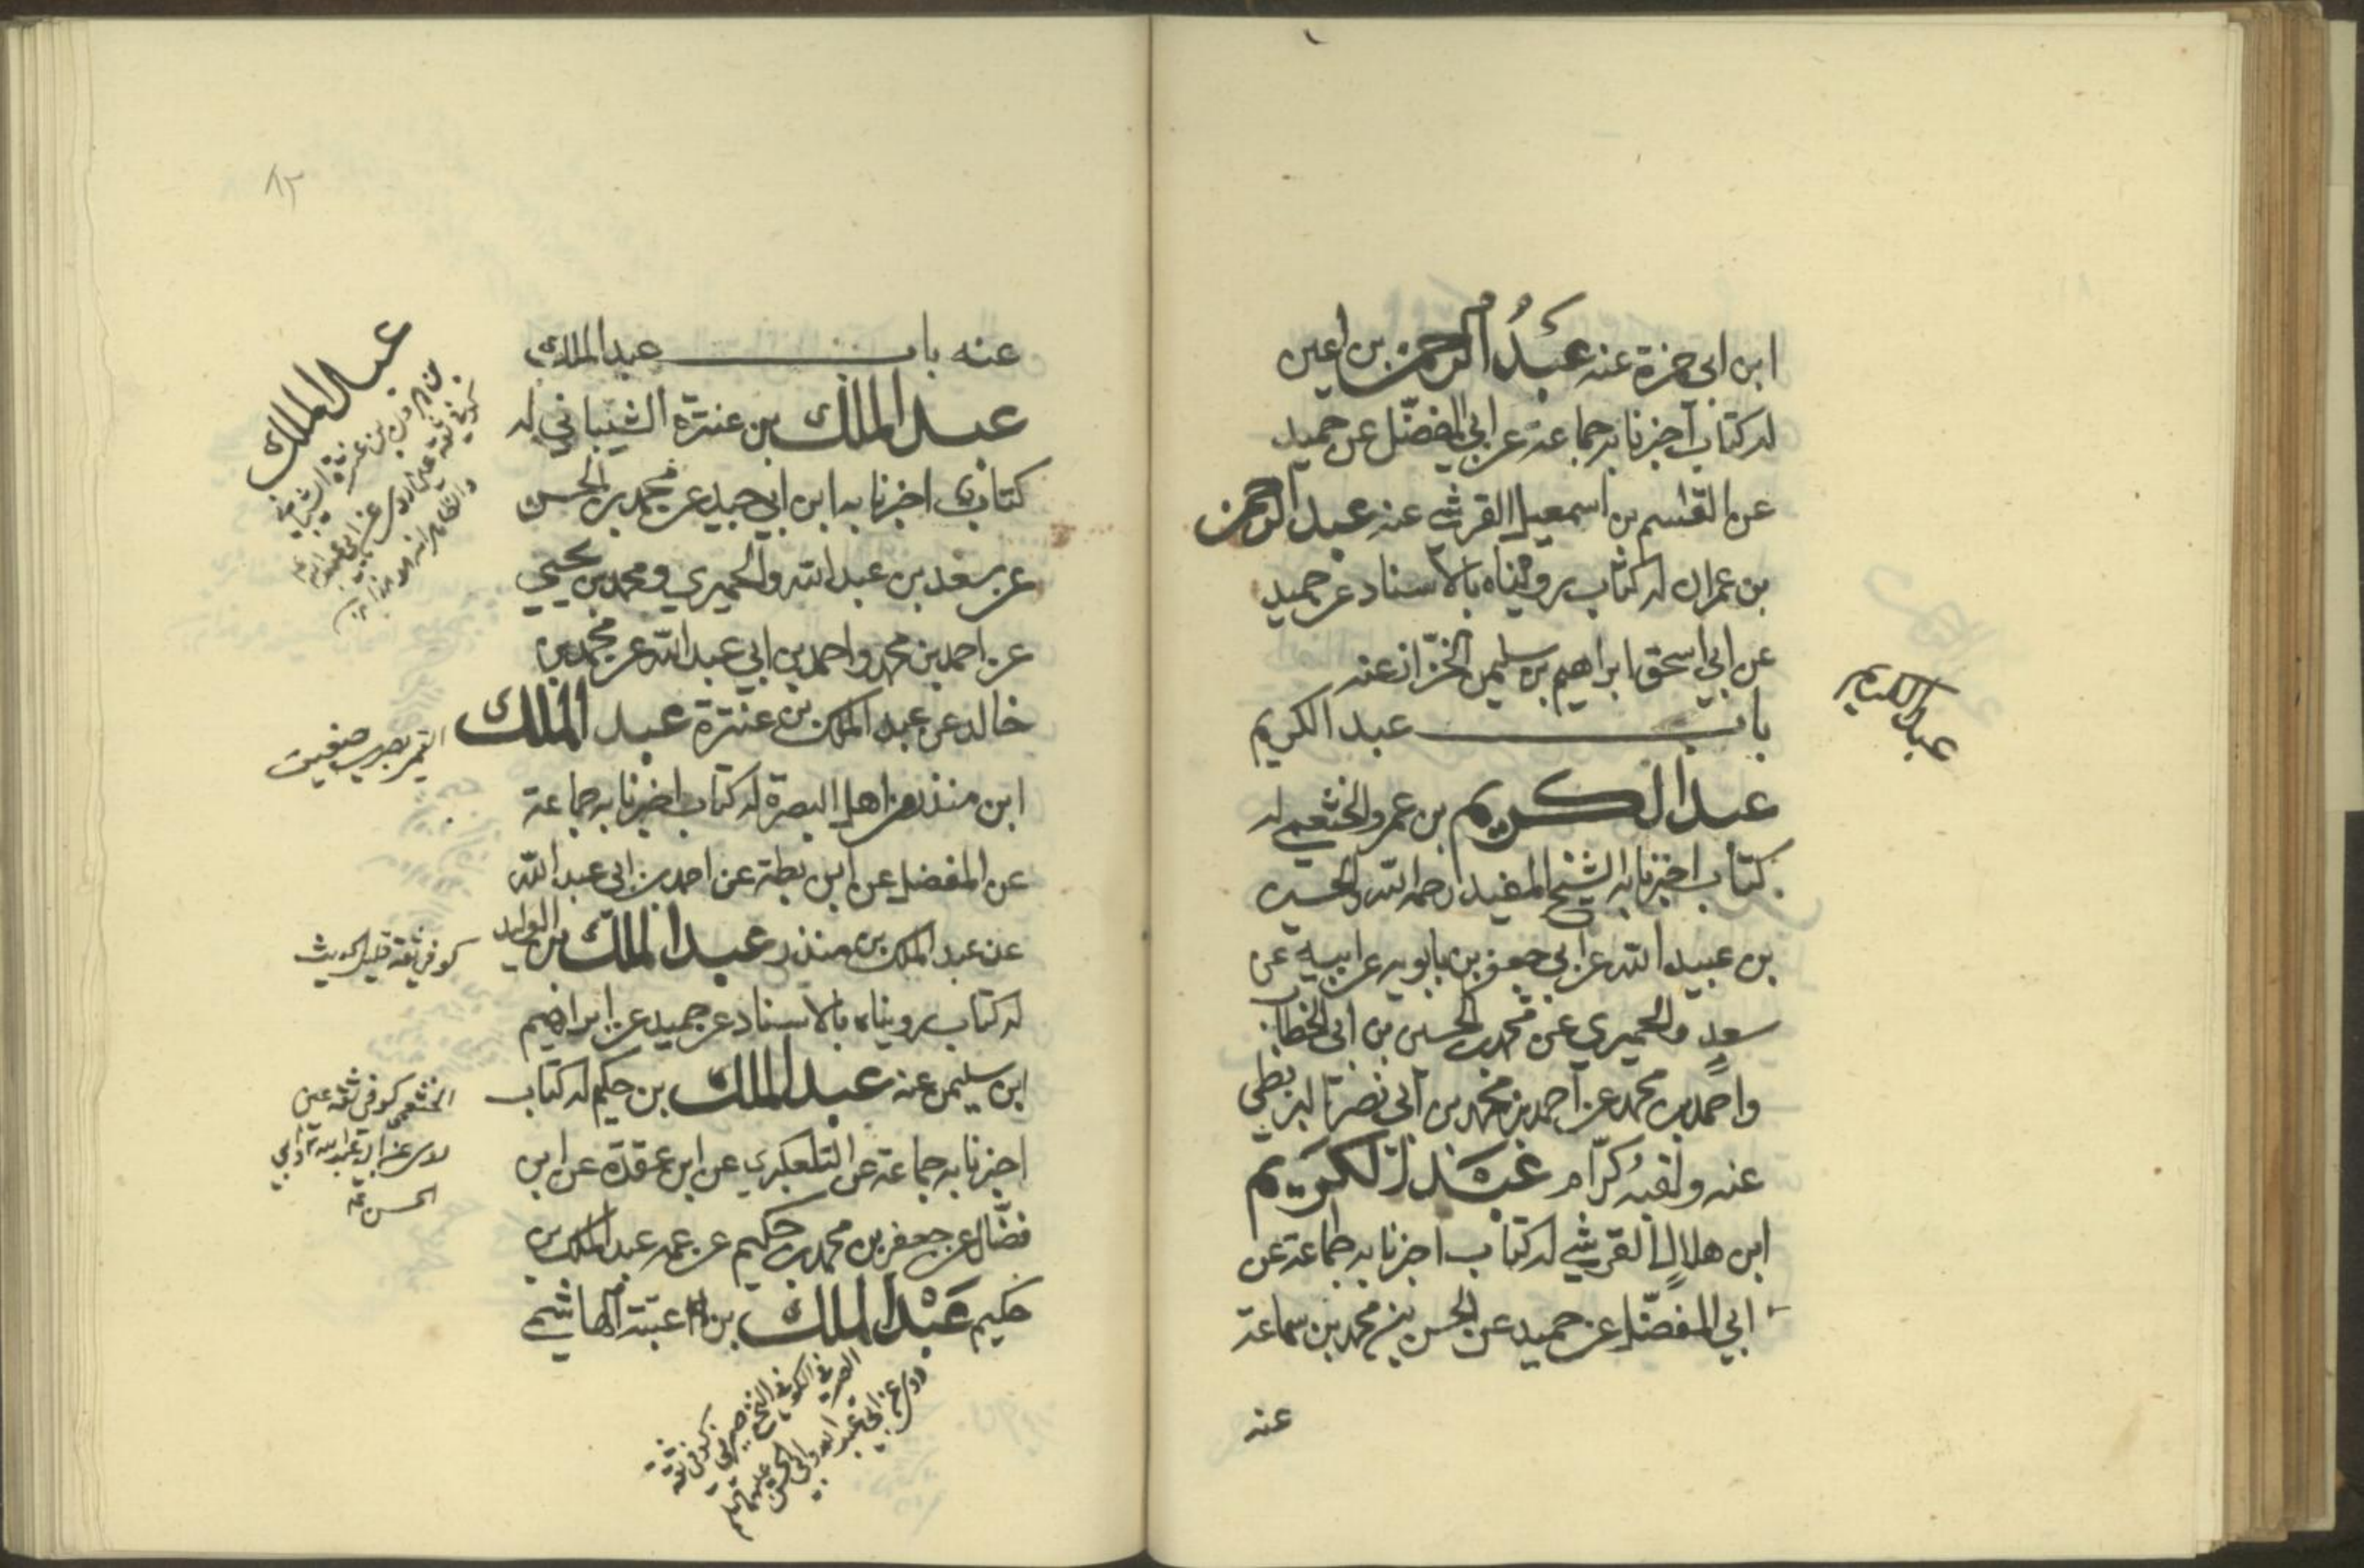 ابن ابي حمزة عنه عَبدُ الرحمن بن اعين
له كتاب اخبرنا به جماعة عن ابي المفضّل عن حميد
عن القسم بن اسمعيل القرشي عنه عبد الرحمن
بن عمران له كتاب رويناه بالاسناد عن حميد
عن ابي اسحق ابراهيم بن سليمن الخزّاز عنه
باب عبد الكريم
عبد الكريم
عبد الكريم بن عمرو الخثعمي له
كتاب اخبرنا به الشيخ المفيد رحمه الله والحسين
بن عبيد الله عن ابي جعفر بن بابويه عن ابيه عن
سعدٍ والحميري عن محمد بن الحسين بن ابي الخطاب
واحمد بن محمد عن احمد بن محمد بن ابي نصر البزنطي
عنه ولقبه كرّام عَبْدُ الكَرِيم
ابن هلالٍ القرشي له كتاب اخبرنا به جماعة عن
ابي المفضّل عن حميد عن الحسن بن محمد بن سماعة
عنه
٨٢
عنه باب عبد الملك
عبد الملك بن عنترة الشيباني له
كتاب اخبرنا به ابن ابي جيد عن محمد بن الحسن
عن سعد بن عبد الله والحميري ومحمد بن يحيى
عن احمد بن محمد واحمد بن ابي عبد الله عن محمد بن
خالد عن عبد الملك بن عنترة عبد الملك
ابن منذر من اهل البصرة له كتاب اخبرنا به جماعة
عن المفضل عن ابن بطة عن احمد بن ابي عبد الله
عن عبد الملك بن منذر عبد الملك بن الوليد
له كتاب رويناه بالاسناد عن حميد عن ابراهيم
ابن سليمن عنه عبد الملك بن حكيم له كتاب
اخبرنا به جماعة عن التلعكبري عن ابن عقدة عن ابن
فضّال عن جعفر بن محمد بن حكيم عن عمه عبد الملك بن
حكيم عَبْد الملك بن عتبة الهاشمي
عبد الملك
بن هرون بن عنترة الشيباني
كوفي ثقة عين روى عن ابي عبد الله
القمي بصري ضعيف
كوفي ثقة قليل الحديث
الخثعمي كوفي ثقة عين
روى عن ابي عبد الله وابي
الحسن
الصيرفي الكوفي النخعي صيرفي كوفي ثقة
روى عن ابي عبد الله وابي الحسن عليهما السلم